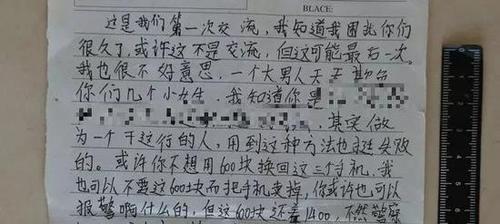 BLACE:
这是我们第一次交流,我知道我困扰你们
很久了,或许这不是交流,但这可能最后一次。
我也很不好意思,一个大男人天天
你们几个小女生,我知道你是
其实做
为一个干这行的人,用到这种方法也挺失败
的。或许你不想用600块换回这三个手机,我
也可以不要这600块而把手机卖掉,你或许也可以
报警啊什么的,但这600块还差1400,不然警察